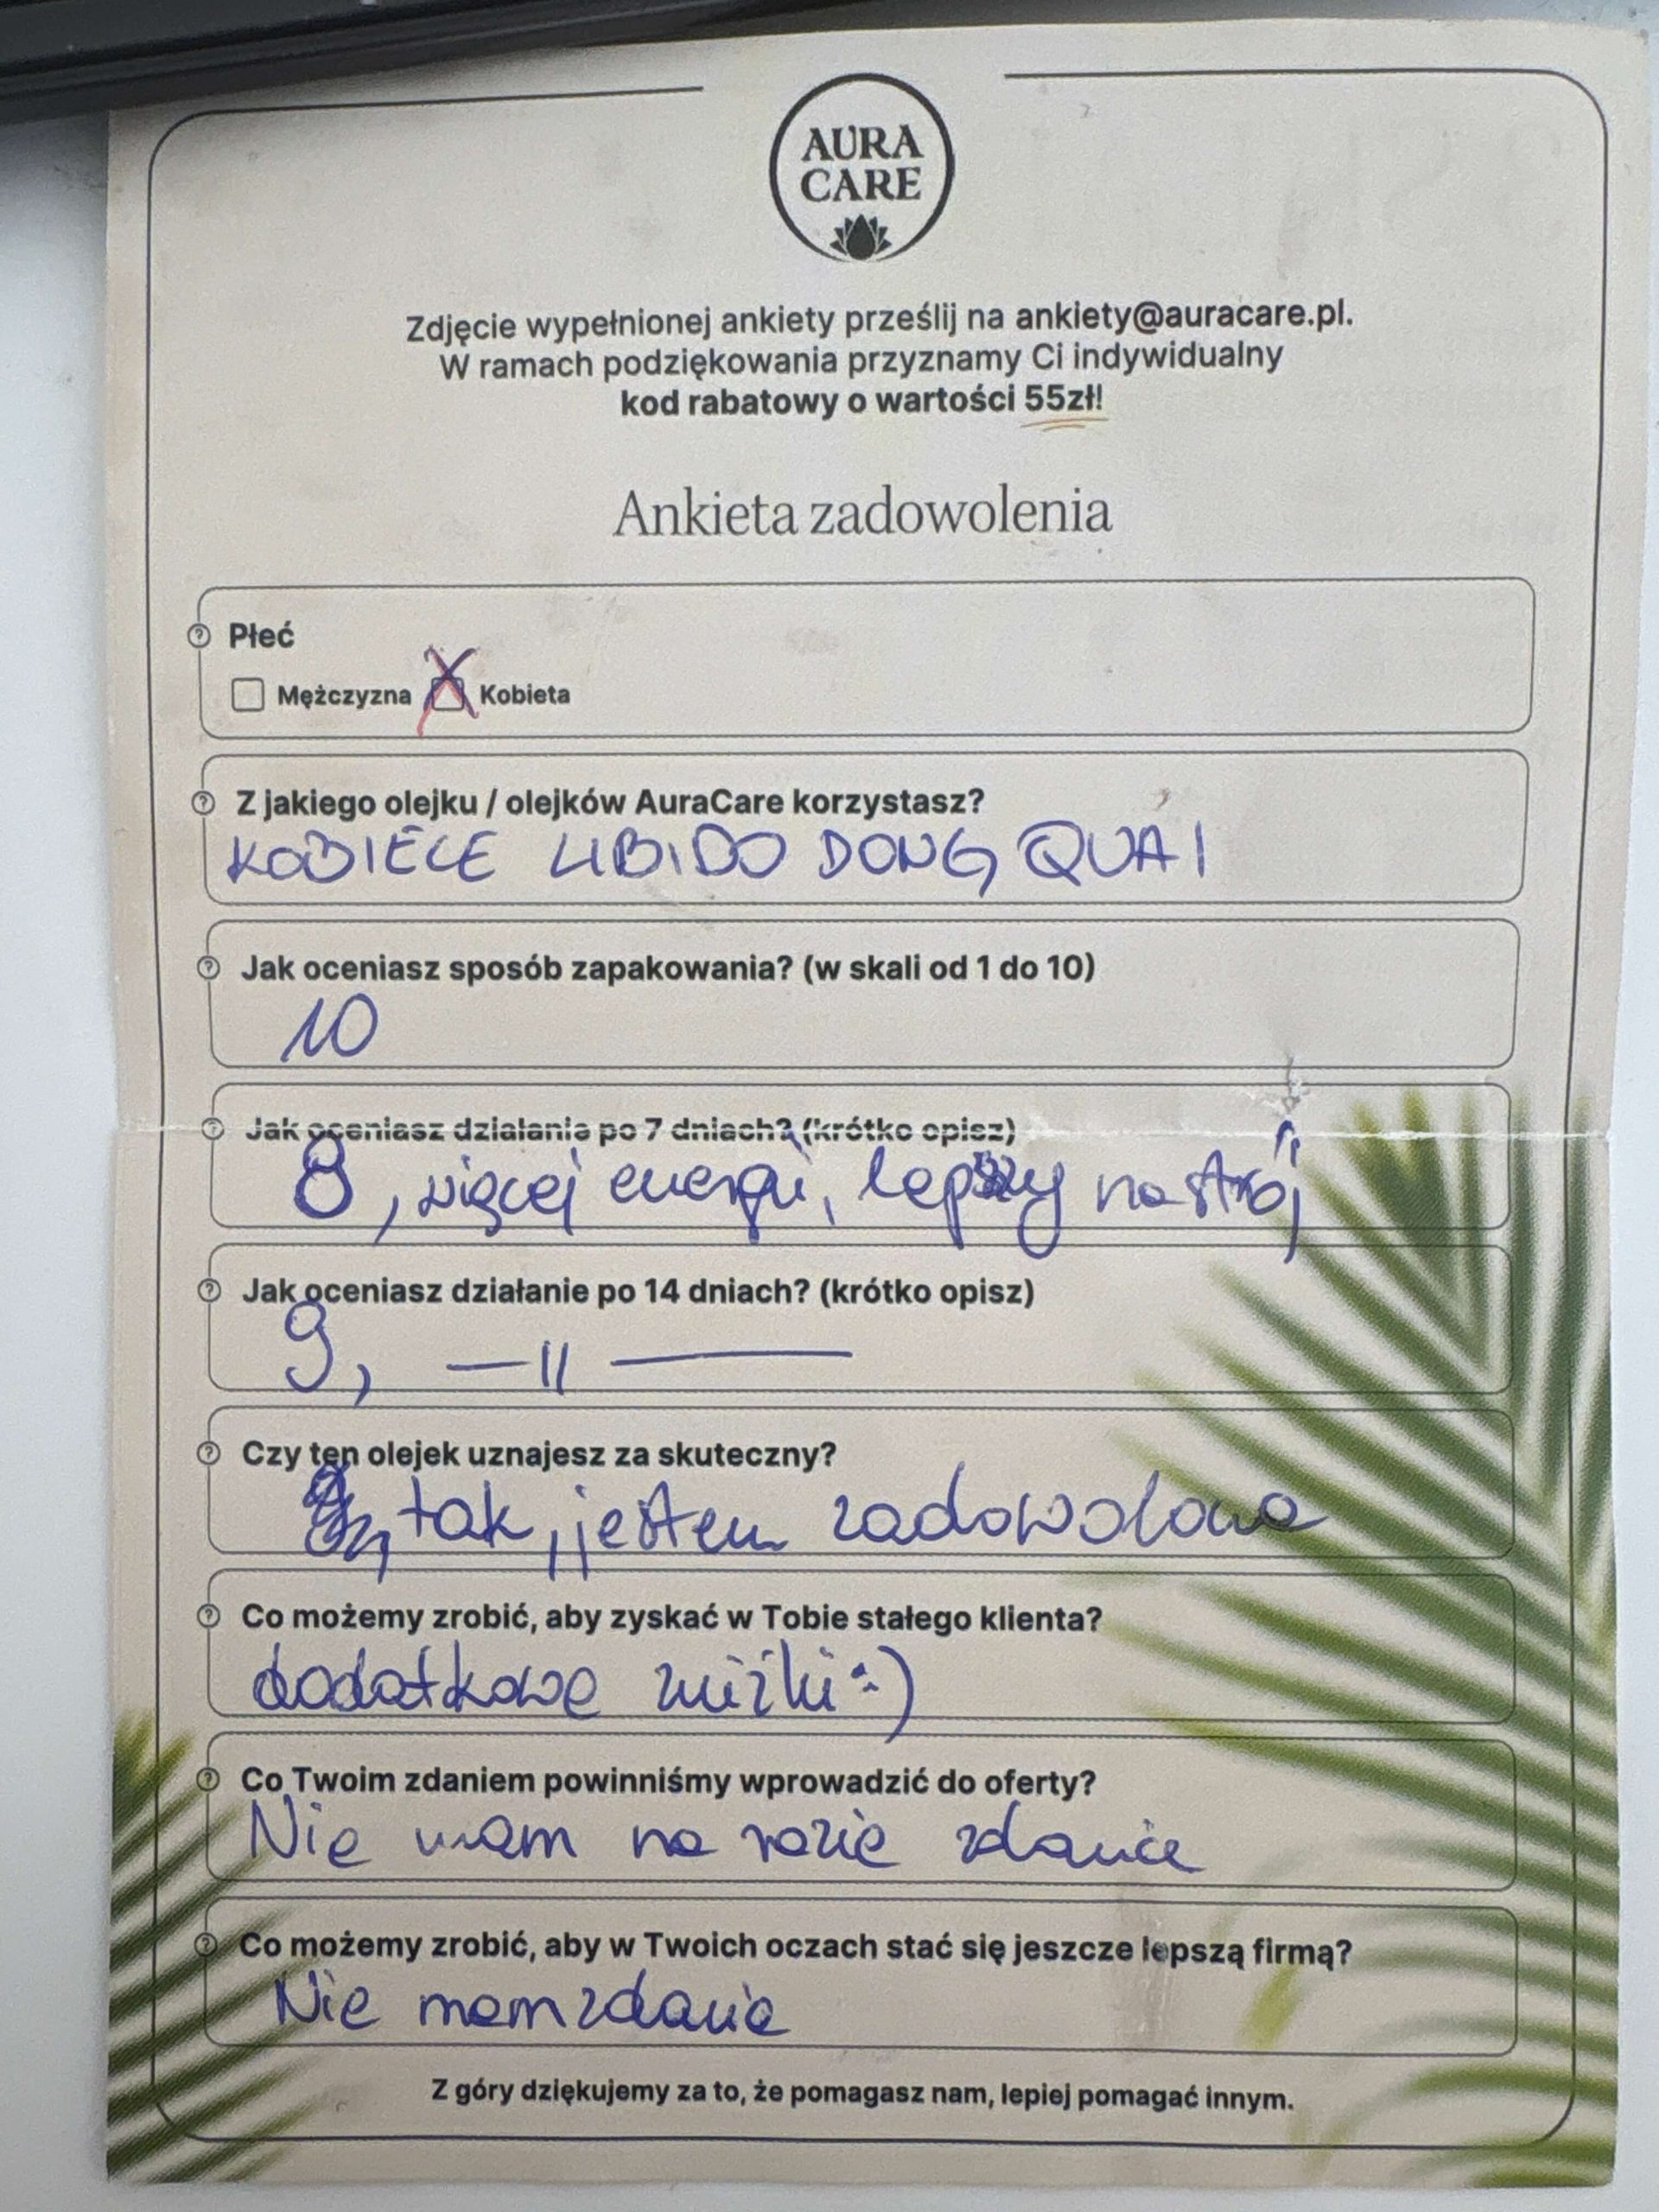 AURA
CARE
Zdjęcie wypełnionej ankiety prześlij na ankiety@auracare.pl.
W ramach podziękowania przyznamy Ci indywidualny
kod rabatowy o wartości 55zł!
Ankieta zadowolenia
Płeć
Mężczyzna X Kobieta
Z jakiego olejku / olejków AuraCare korzystasz?
KOBIECE LIBIDO DONG QUAI
Jak oceniasz sposób zapakowania? (w skali od 1 do 10)
10
Jak oceniasz działanie po 7 dniach? (krótko opisz)
8, więcej energii, lepszy nastrój
Jak oceniasz działanie po 14 dniach? (krótko opisz)
9, —11——
Czy ten olejek uznajesz za skuteczny?
tak, jestem zadowolona
Co możemy zrobić, aby zyskać w Tobie stałego klienta?
dodatkowe zniżki :)
Co Twoim zdaniem powinniśmy wprowadzić do oferty?
Nie mam na razie zdania
Co możemy zrobić, aby w Twoich oczach stać się jeszcze lepszą firmą?
Nie mam zdania
Z góry dziękujemy za to, że pomagasz nam, lepiej pomagać innym.